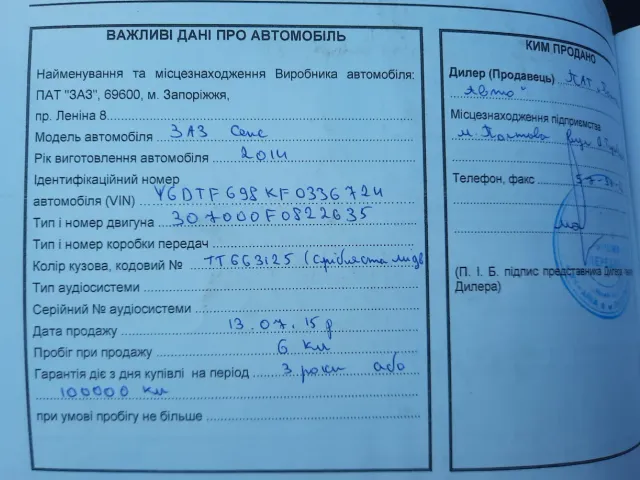 ВАЖЛИВІ ДАНІ ПРО АВТОМОБІЛЬ
Найменування та місцезнаходження Виробника автомобіля:
ПАТ "ЗАЗ", 69600, м. Запоріжжя,
пр. Леніна 8
Модель автомобіля ЗАЗ Сенс
Рік виготовлення автомобіля 2014
Ідентифікаційний номер
автомобіля (VIN) Y6DTF698KF0336724
Тип і номер двигуна 307000F0822635
Тип і номер коробки передач
Колір кузова, кодовий № TT663125 (срібляста
Тип аудіосистеми
Серійний № аудіосистеми
Дата продажу 13.07.15р
Пробіг при продажу 6 км
Гарантія діє з дня купівлі на період 3 роки або
100000 км
при умові пробігу не більше
КИМ ПРОДАНО
Дилер (Продавець) ПАТ
Авто"
Місцезнаходження підприємства
м. Полтава вул.
Телефон, факс
(П. І. Б. підпис представника Дилера
Дилера)